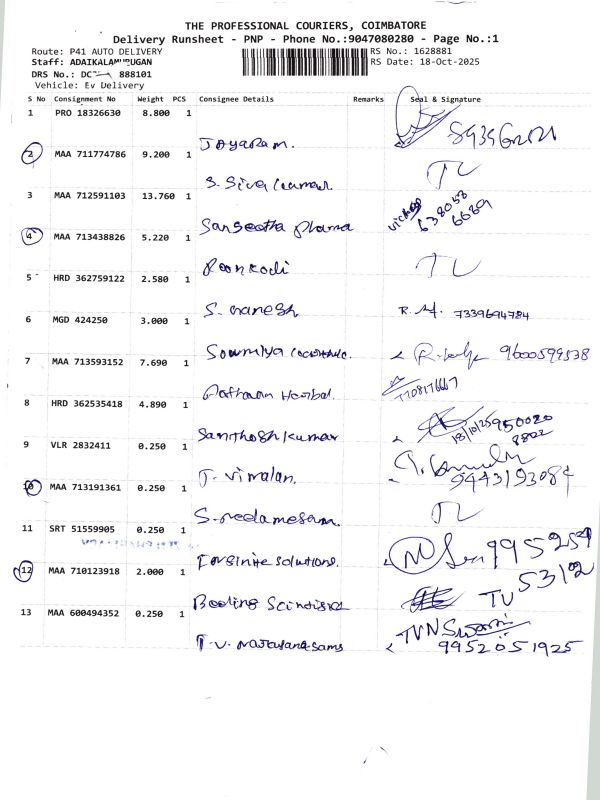 THE PROFESSIONAL COURIERS, COIMBATORE
Delivery Runsheet - PNP - Phone No.:9047080280 - Page No.:1
Route: P41 AUTO DELIVERY RS No.: 1628881
Staff: RS Date: 18-Oct-2025
DRS No.: 888101
Vehicle: Ev Delivery
S No Consignment No Weight PCS Consignee Details Remarks Seal & Signature
1 PRO 18326630 8.800 1
Jayaram.
2 MAA 711774786 9.200 1
S. Siva kumar. TL
3 MAA 712591103 13.760 1
Sangeetha Pharma 638058
6689
4 MAA 713438826 5.220 1
Poonkodi TL
5 HRD 362759122 2.580 1
S. Ganesh R. 7339694784
6 MGD 424250 3.000 1
Sowmiya 9600599538
7 MAA 713593152 7.690 1
Herbal. 7708176667
8 HRD 362535418 4.890 1
Santhosh kumar 18/10/25 950020
8802
9 VLR 2832411 0.250 1
T. Vimalan.
10 MAA 713191361 0.250 1
TL
11 SRT 51559905 0.250 1
solutions. 995259
5312
12 MAA 710123918 2.000 1
TV
13 MAA 600494352 0.250 1
TVN Swami
T.V. 9952051925